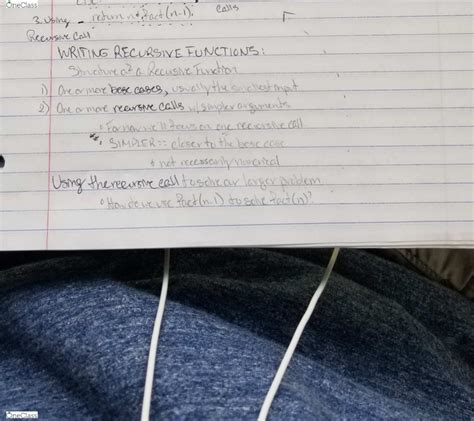 OneClass
Calls
3. Using return n * fact(n-1);
Recursive Call
WRITING RECURSIVE FUNCTIONS:
Structure of a Recursive Function
1) One or more base cases, usually the smallest input
2) One or more recursive calls w/ simpler arguments
* For now we'll focus on one recursive call
* SIMPLER:: closer to the base case
* not necessarily numerical
Using the recursive call to solve our larger problem
* How do we use fact(n-1) to solve fact(n)?
OneClass